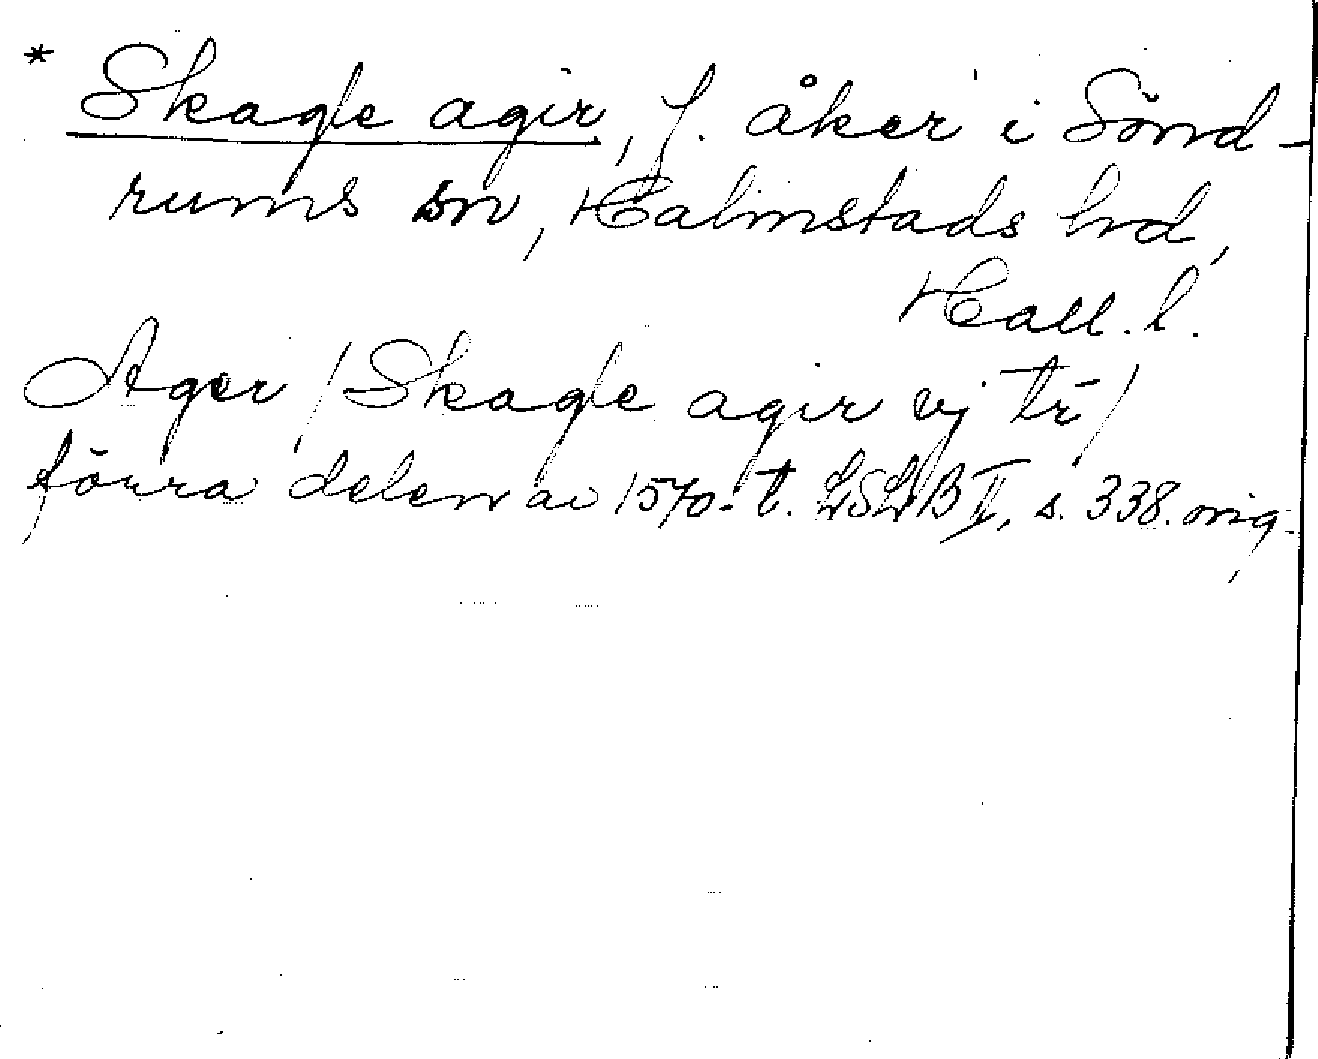 * Skagle agir, f. åker i Sönd-
rums sn, Halmstads hd,
Hall. l.
Ager / Skagle agir vj tr̄ /
förra delen av 1570-t. LSLB II, s. 338. orig.